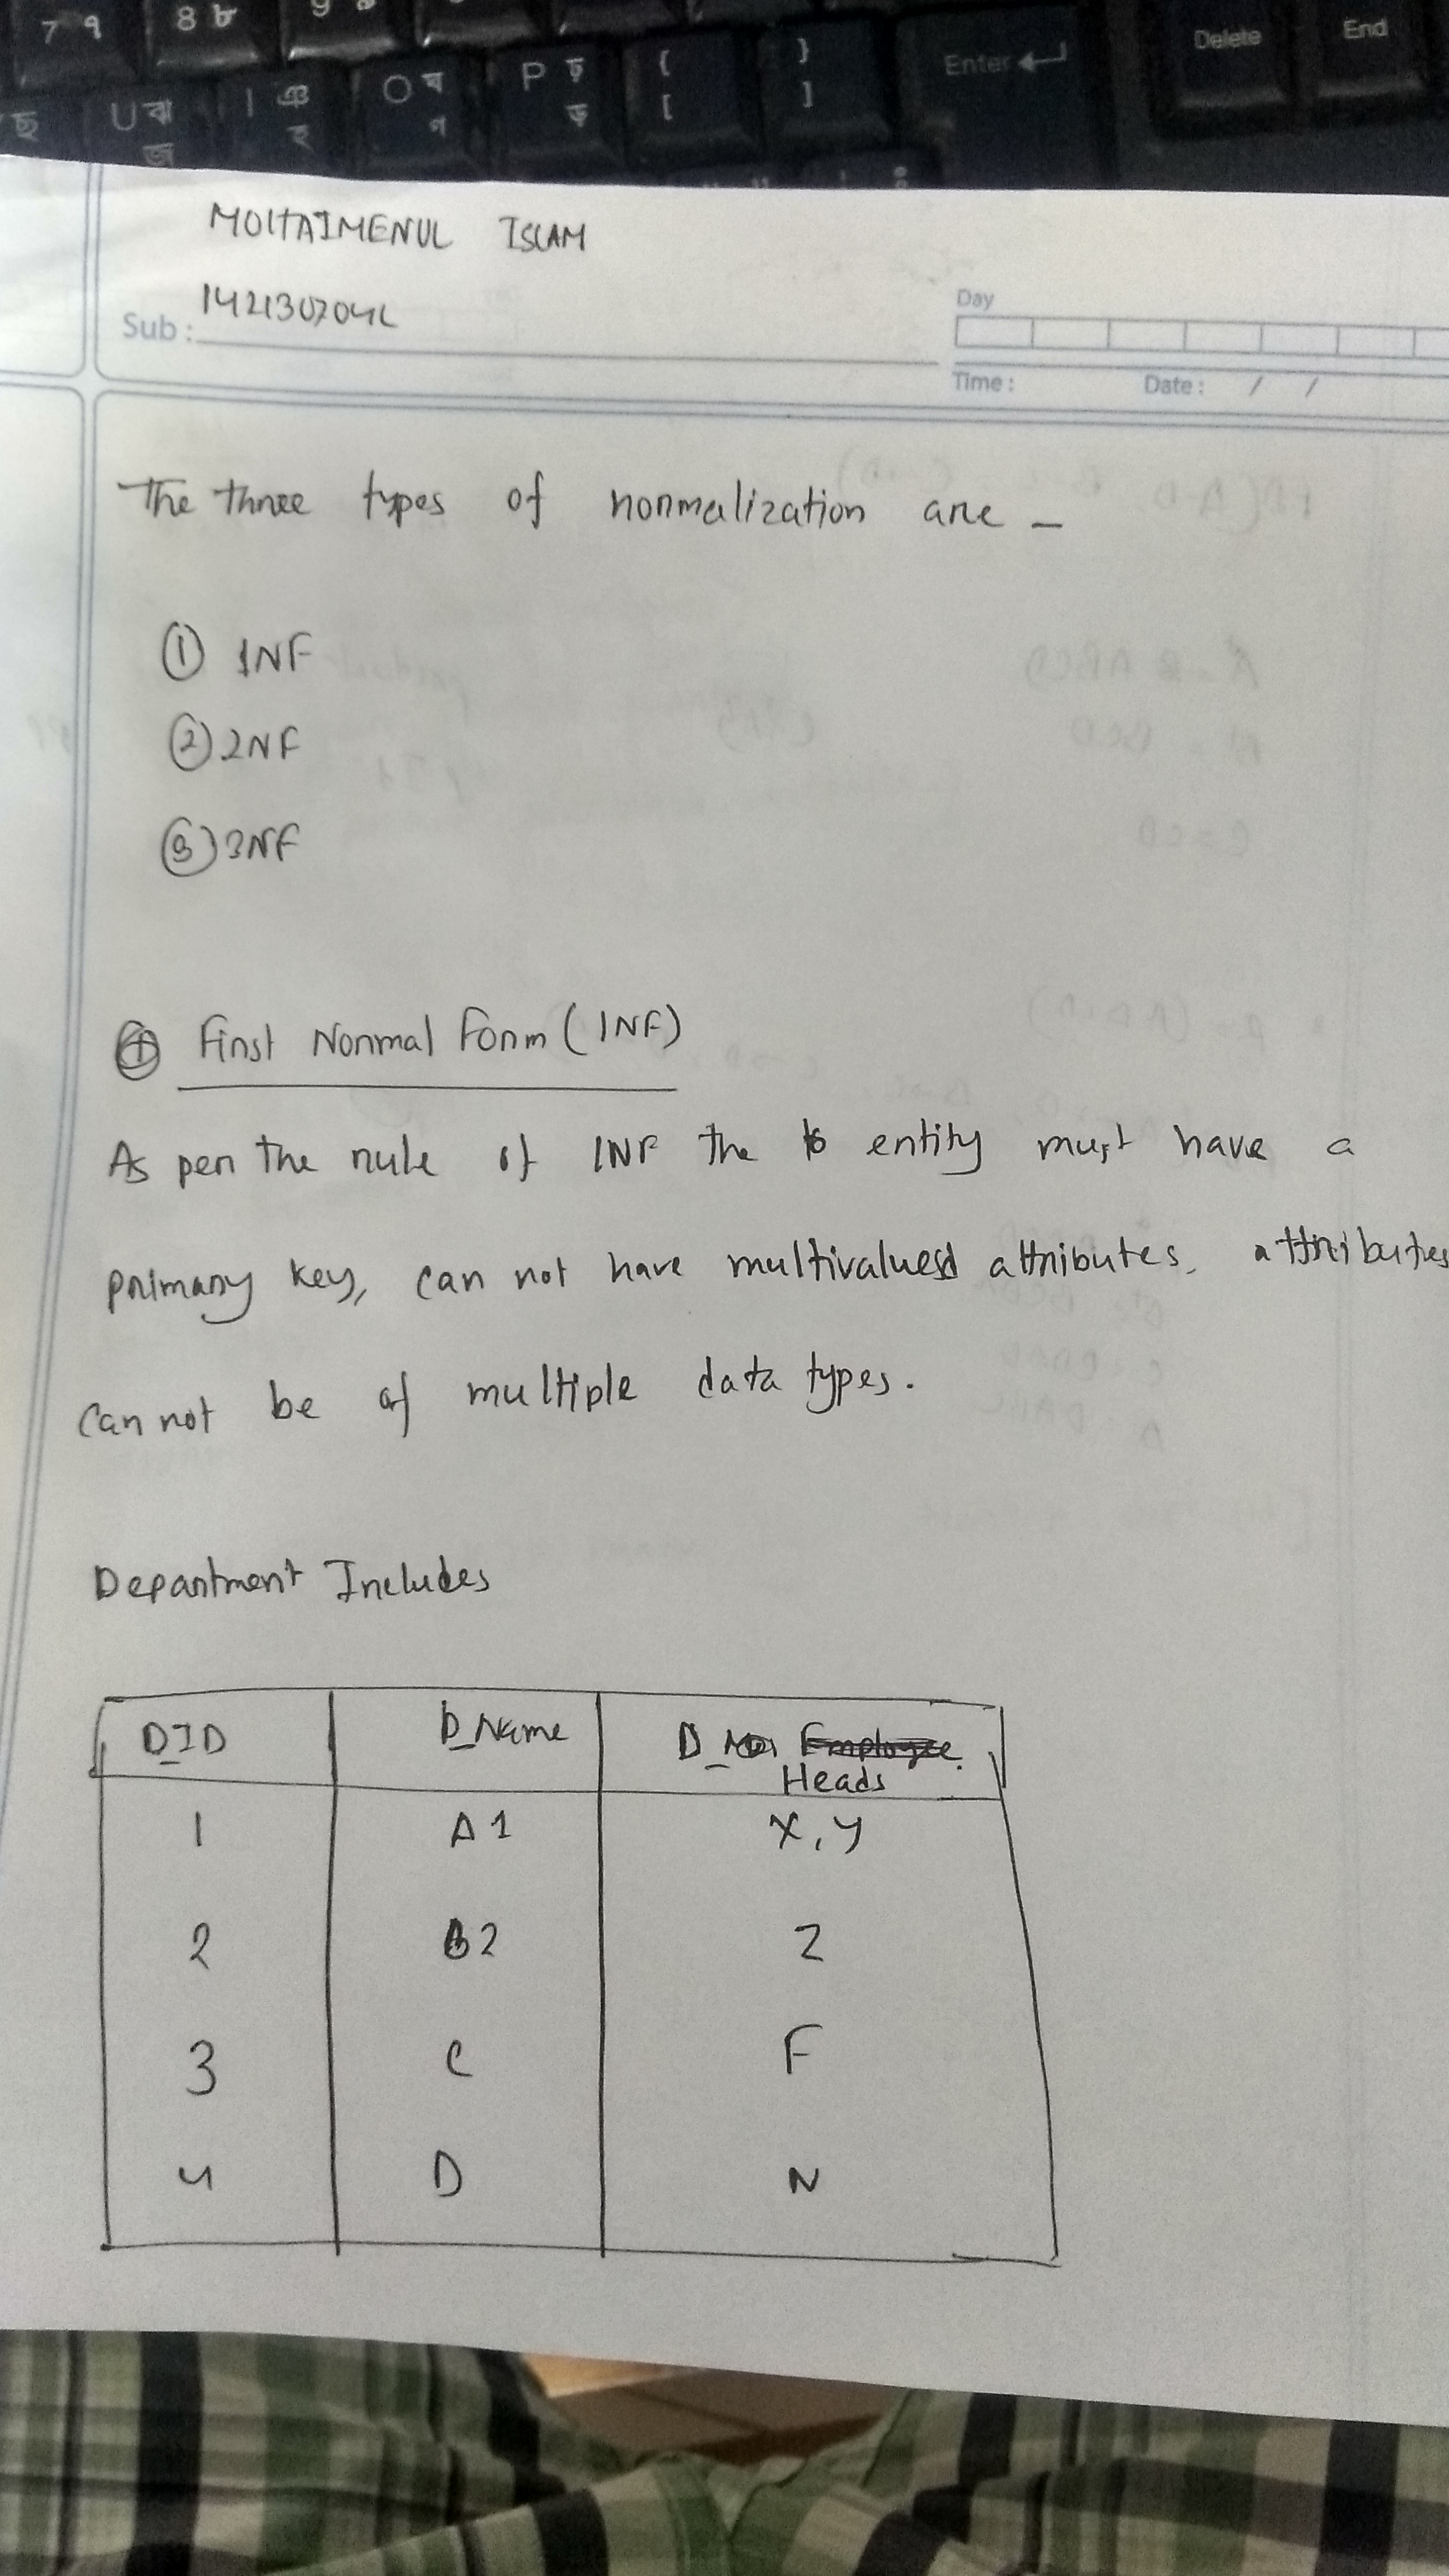 7 ৭ 8 ৮ 9
U ঝ জ I ঞ হ O ঘ গ P ঢ ড় { [ } ] Enter Delete End
ছ
MOHTAIMENUL ISLAM
Sub :
Day
Time : Date : / /
The three types of normalization are –
① 1NF
② 2NF
③ 3NF
First Normal Form (1NF)
As per the rule of 1NF the entity must have a
primary key, can not have multivalued attributes, attributes
can not be of multiple data types.
Department Includes
D_ID D_Name D_ Employee Heads
1 A1 X, Y
2 B2 Z
3 C F
4 D N